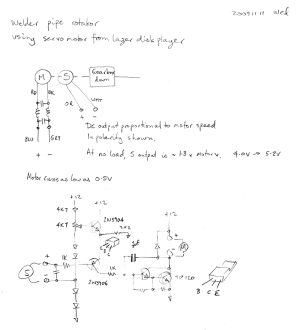 2009 11 11 Wed
Welder pipe rotator
using servo motor from lazer disk player
M
S
Gearbox
down
RD
BK
OR
WHT
+ -
BLU
GRY
+ -
DC output proportional to motor speed
In polarity shown.
At no load, S output is ~ 1.3 x motor v. 4.0V → 5.2V
Motor runs as low as 0.5V
+12
+12
+12
4K7
4K7
2N3904
1K
1K
2N3906
S
+
-
M
B C E